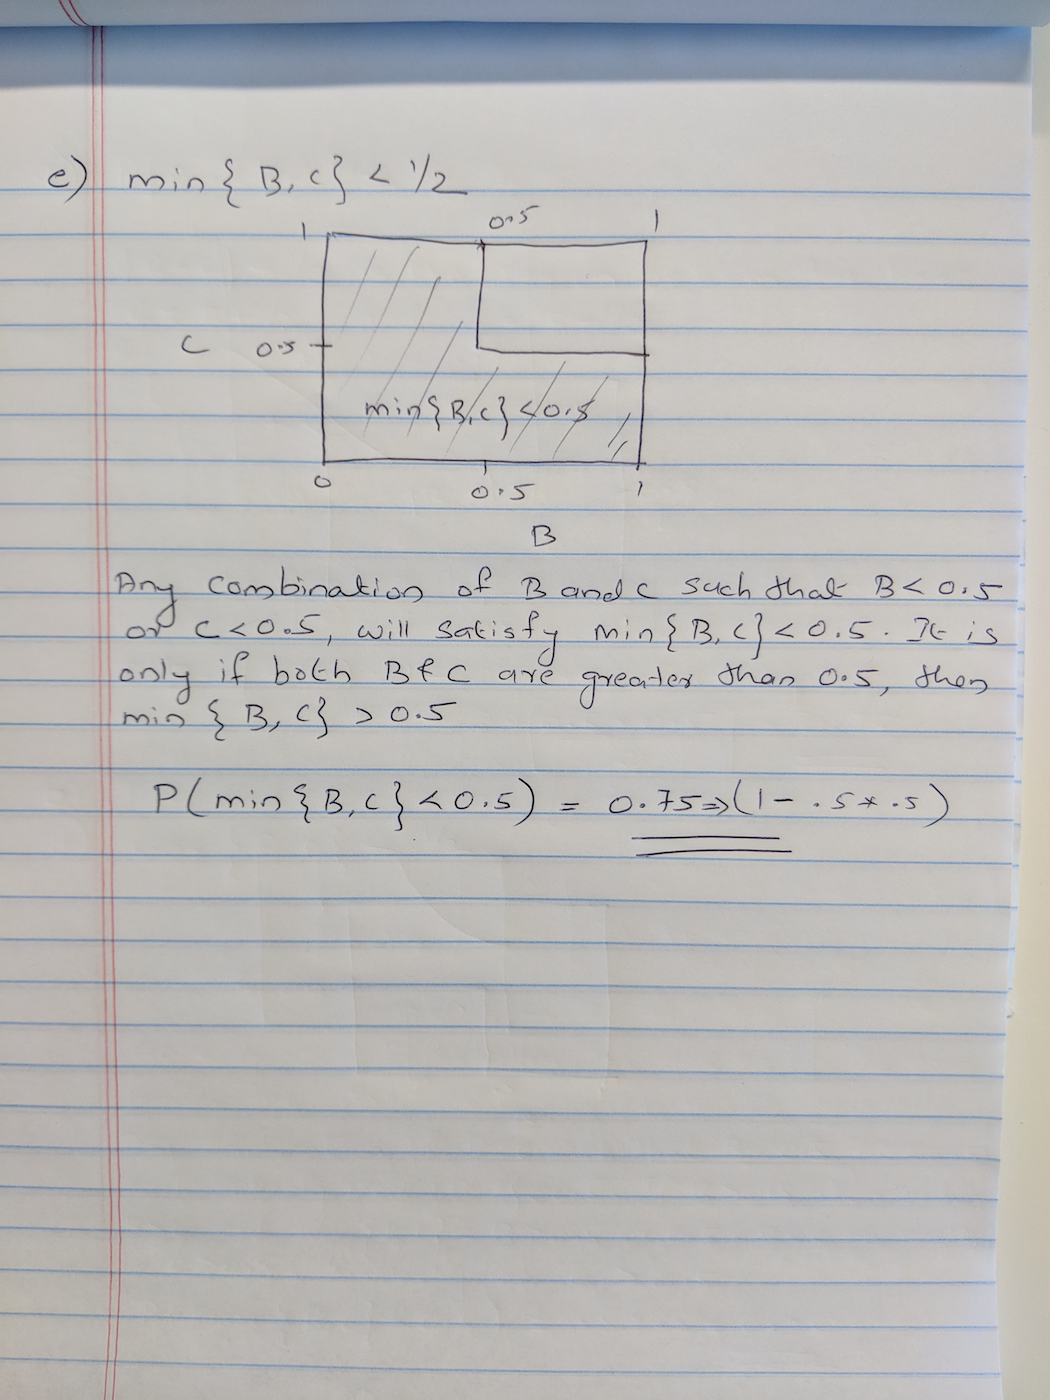 e) min{B,C} < 1/2
1 0.5 1
C 0.5
min{B,C} < 0.5
0 0.5 1
B
Any combination of B and C such that B < 0.5
or C < 0.5, will satisfy min{B,C} < 0.5. It is
only if both B & C are greater than 0.5, then
min {B, C} > 0.5
P(min{B,C} < 0.5) = 0.75 => (1 - .5 * .5)